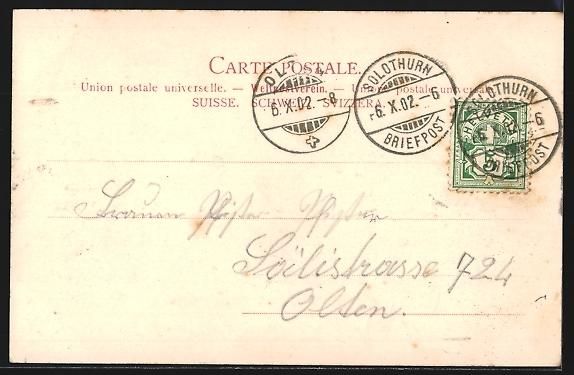 CARTE POSTALE.
Union postale universelle. — Weltpostverein. — Unione postale universale
SUISSE. SCHWEIZ. SVIZZERA.
OLT
6.X.02.-8
SOLOTHURN
6.X.02.-6
BRIEFPOST
SOLOTHURN
-6
BRIEFPOST
HELVETIA
5
Pfister
Sälistrasse 724
Olten.